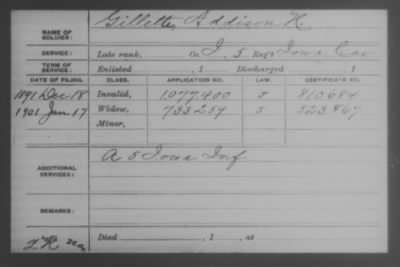 NAME OF SOLDIER: Gillette, Addison H.
SERVICE: Late rank, Co. I, 5 Reg't Iowa Cav
TERM OF SERVICE: Enlisted , 1 Discharged , 1
DATE OF FILING. CLASS. APPLICATION NO. LAW. CERTIFICATE NO.
1891 Dec 18 Invalid, 1,077,400 J 810684
1901 Jan 17 Widow, 733259 J 523,867
Minor,
ADDITIONAL SERVICES: A 5 Iowa Inf
REMARKS:
Died , 1 , at